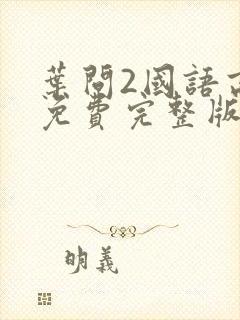 葉問2國語
免費完整版
明義